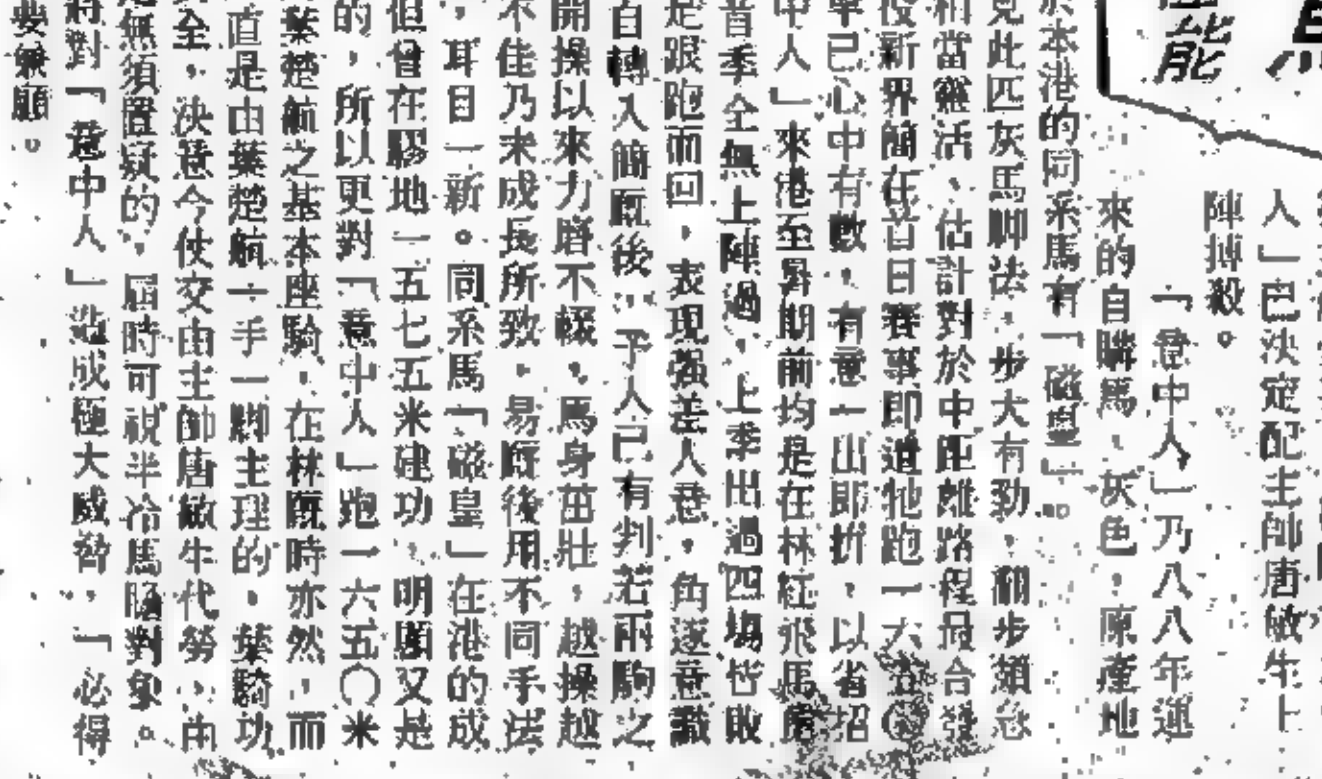 人」已決定配主帥唐敏牛上
陣搏殺。
「意中人」乃八八年運
來的自購馬,灰色,原產地
於本港的同系馬有「磁皇」。
見此匹灰馬脚法,步大有勁,翻步頻急
相當靈活、估計對於中距離路程最合發
役新界簡在首日賽事即遣牠跑一六五〇
單已心中有數,有意一出即拚,以省招
中人」來港至暑期前均是在林紅飛馬房
首季全無上陣過,上季出過四場皆敗
足跟跑而回,表現強差人意,角逐意識
自轉入簡厩後,予人已有判若兩駒之
開操以來力磨不輟,馬身茁壯,越操越
不佳乃未成長所致,易厩後用不同手法
,耳目一新。同系馬「磁皇」在港的成
但曾在膠地一五七五米建功,明顯又是
的,所以更對「意中人」跑一六五〇米
葉楚航之基本座騎,在林厩時亦然,而
直是由葉楚航一手一脚主理的,葉騎功
全,決意今仗交由主帥唐敏牛代勞,由
無須置疑的,屆時可視半冷馬膽對象。
將對「意中人」造成極大威脅,「必得
要兼顧。